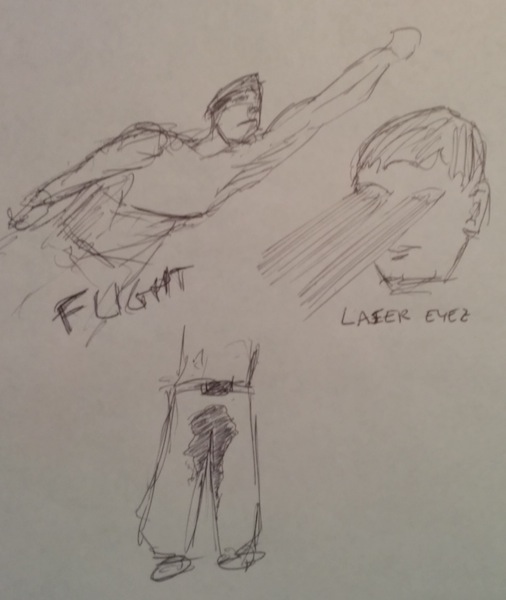 FLIGHT
LASER EYEZ